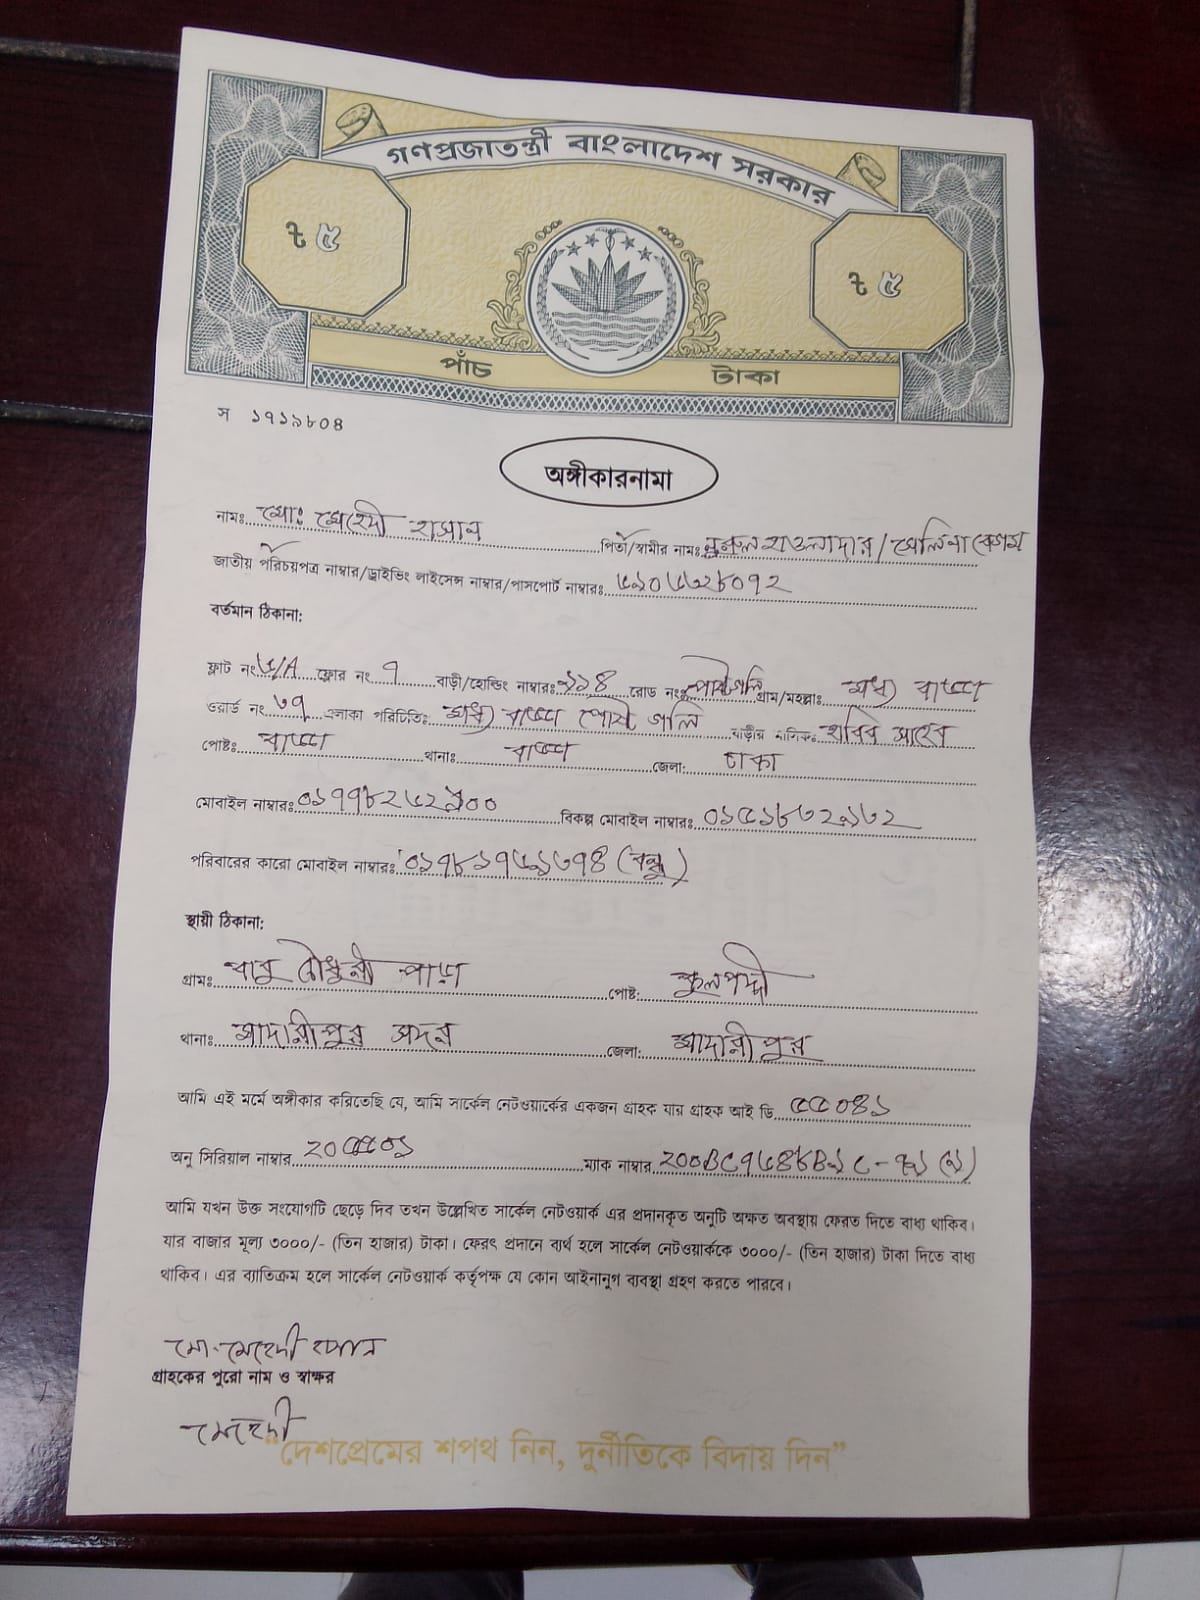 গণপ্রজাতন্ত্রী বাংলাদেশ সরকার
৳ ৫
৳ ৫
পাঁচ টাকা
স ১৭১৯৮০৪
অঙ্গীকারনামা
নামঃ মোঃ মেহেদী হাসান পিতা/স্বামীর নামঃ নুরুল হাওলাদার/সেলিনা বেগম
জাতীয় পরিচয়পত্র নাম্বার/ড্রাইভিং লাইসেন্স নাম্বার/পাসপোর্ট নাম্বারঃ
বর্তমান ঠিকানা:
ফ্লাট নং ৬/A ফ্লোর নং ৭ বাড়ী/হোল্ডিং নাম্বারঃ ১১৪ রোড নংঃ পোস্টগলি গ্রাম/মহল্লাঃ মধ্য বাড্ডা
ওয়ার্ড নং ৩৭ এলাকা পরিচিতিঃ মধ্য বাড্ডা পোস্ট গলি বাড়ীর মালিকঃ হাবিব সাহেব
পোষ্টঃ বাড্ডা থানাঃ বাড্ডা জেলা: ঢাকা
মোবাইল নাম্বারঃ বিকল্প মোবাইল নাম্বারঃ
পরিবারের কারো মোবাইল নাম্বারঃ (বন্ধু)
স্থায়ী ঠিকানা:
গ্রামঃ বাবু চৌধুরী পাড়া পোষ্ট: কুলপদ্দী
থানাঃ মাদারীপুর সদর জেলা: মাদারীপুর
আমি এই মর্মে অঙ্গীকার করিতেছি যে, আমি সার্কেল নেটওয়ার্কের একজন গ্রাহক যার গ্রাহক আই ডি ৫৫০৪১
অনু সিরিয়াল নাম্বার ম্যাক নাম্বার
আমি যখন উক্ত সংযোগটি ছেড়ে দিব তখন উল্লেখিত সার্কেল নেটওয়ার্ক এর প্রদানকৃত অনুটি অক্ষত অবস্থায় ফেরত দিতে বাধ্য থাকিব।
যার বাজার মূল্য ৩০০০/- (তিন হাজার) টাকা। ফেরৎ প্রদানে ব্যর্থ হলে সার্কেল নেটওয়ার্ককে ৩০০০/- (তিন হাজার) টাকা দিতে বাধ্য
থাকিব। এর ব্যাতিক্রম হলে সার্কেল নেটওয়ার্ক কর্তৃপক্ষ যে কোন আইনানুগ ব্যবস্থা গ্রহণ করতে পারবে।
মো. মেহেদী হাসান
গ্রাহকের পুরো নাম ও স্বাক্ষর
মেহেদী
“দেশপ্রেমের শপথ নিন, দুর্নীতিকে বিদায় দিন”